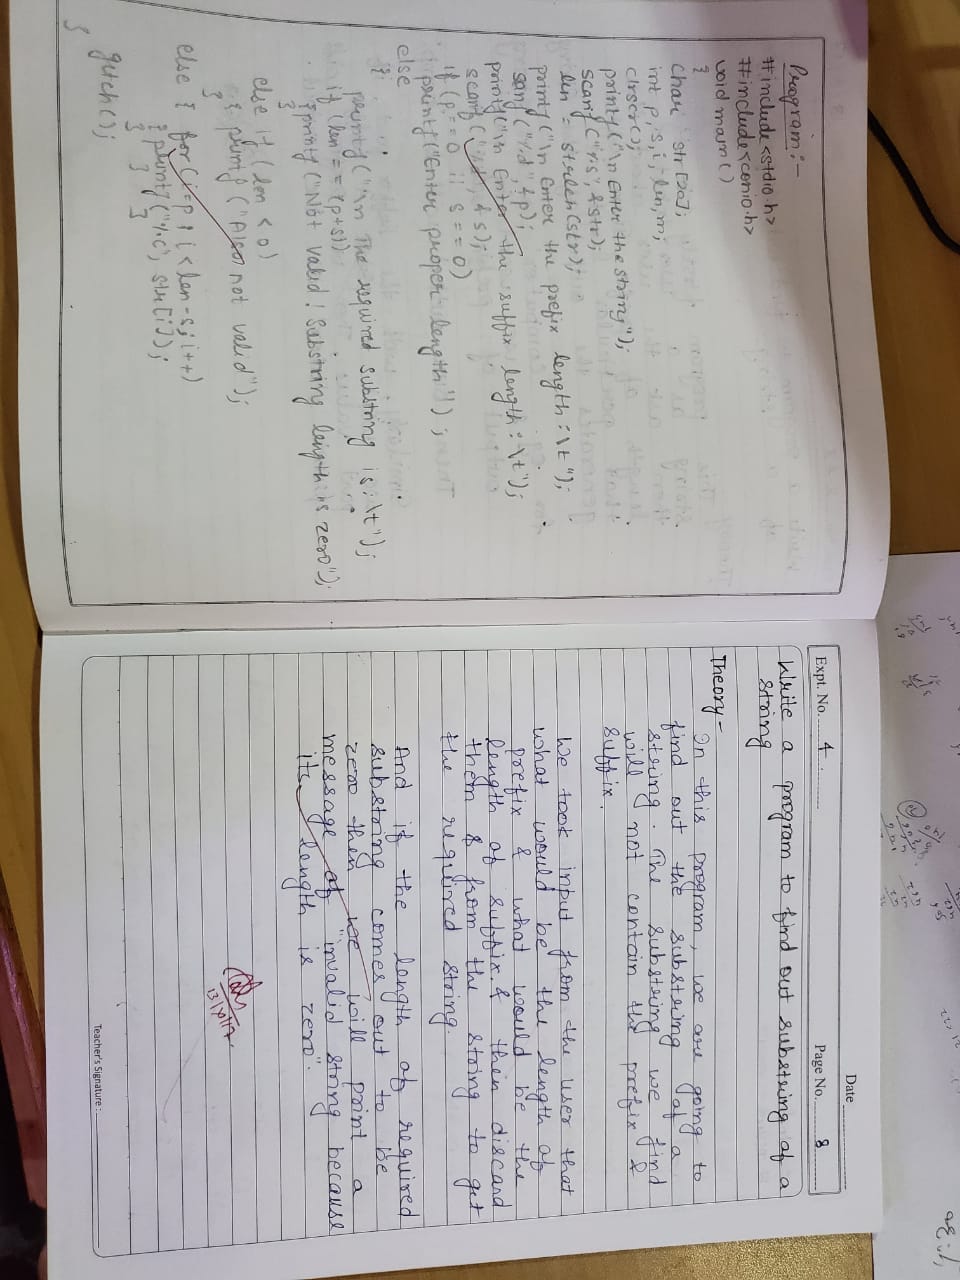 Program :-
#include <stdio.h>
#include <conio.h>
void main()
{
char str[20];
int p, s, i, len, m;
clrscr();
printf("\n Enter the string");
scanf("%s", &str);
len = strlen(str);
printf("\n Enter the prefix length :\t");
scanf("%d", &p);
printf("\n Enter the suffix length :\t");
scanf("%d", &s);
if (p == 0 || s == 0)
printf("Enter proper length");
else
{
printf("\n The required substring is :\t");
if (len == (p+s))
{ printf("Not valid! Substring length is zero");
}
else if (len < 0)
{ printf("Also not valid");
}
else { for (i=p; i < len-s; i++)
{ printf("%c", str[i]);
} }
getch();
}
Expt. No. 4
Date
Page No. 8
Write a program to find out substring of a
string
Theory -
In this program, we are going to
find out the substring of a
string. The substring we find
will not contain the prefix &
suffix.
We took input from the user that
what would be the length of
prefix & what would be the
length of suffix. & then discard
them & from the string to get
the required string.
And if the length of required
substring comes out to be
zero then we will print a
message of "invalid string because
its length is zero".
Teacher's Signature :